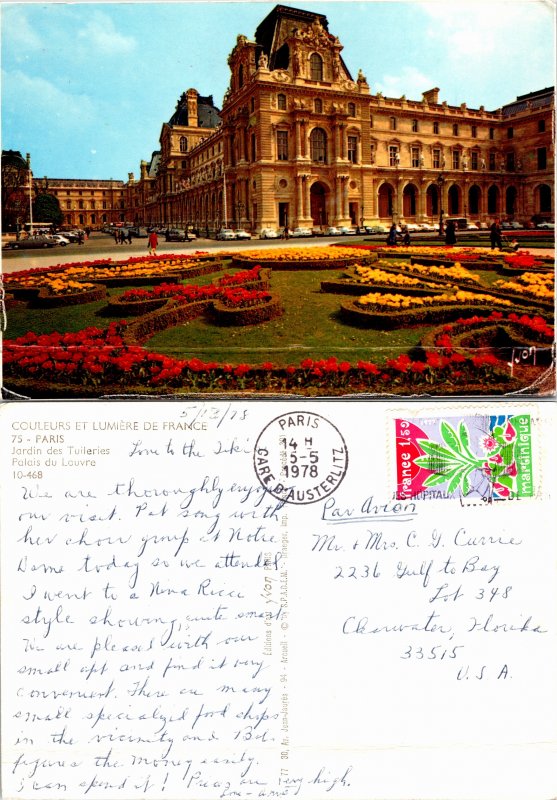 yvon
5/12/78
COULEURS ET LUMIÈRE DE FRANCE
75 - PARIS
Jardin des Tuileries
Palais du Louvre
10-468
Love to the
We are thoroughly enjoying
our visit. Pat sang with
her choir group at Notre
Dame today so we attended
I went to a Nina Ricci
style showing, quite smart.
We are pleased with our
small apt and find it very
convenient. There are many
small specialized food shops
in the vicinity and Bob
figures the money easily.
I can spend it! Prices are very high.
PARIS
14 H
5-5
1978
GARE D'AUSTERLITZ
france 1,50
martinique
Par Avion
Mr. & Mrs. C. G. Currie
2236 Gulf to Bay
Lot 348
Clearwater, Florida
33515
U.S.A.
Editions d'art yvon PARIS
30, Av. Jean-Jaurès - 94 - Arcueil